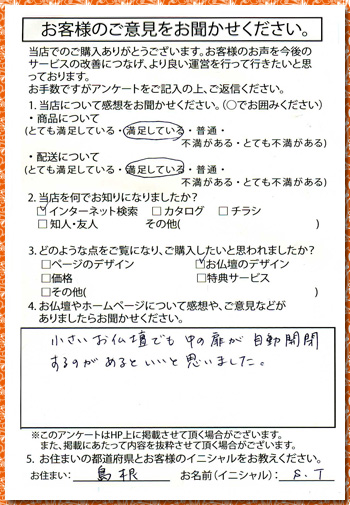 お客様のご意見をお聞かせください。
当店でのご購入ありがとうございます。お客様のお声を今後の
サービスの改善につなげ、より良い運営を行って行きたいと思
っております。
お手数ですがアンケートをご記入の上、ご返信ください。
1. 当店について感想をお聞かせください。(〇でお囲みください)
・商品について
(とても満足している・満足している・普通・
不満がある・とても不満がある)
・配送について
(とても満足している・満足している・普通・
不満がある・とても不満がある)
2. 当店を何でお知りになりましたか?
☑インターネット検索 □カタログ □チラシ
□知人・友人 その他( )
3. どのような点をご覧になり、ご購入したいと思われましたか?
□ページのデザイン ☑お仏壇のデザイン
□価格 □特典サービス
□その他( )
4. お仏壇やホームページについて感想や、ご意見などが
ありましたらお聞かせください。
小さいお仏壇でも中の扉が自動開閉
するのがあるといいと思いました。
※このアンケートはHP上に掲載させて頂く場合がございます。
また、掲載にあたって内容を抜粋させて頂く場合がございます。
5. お住まいの都道府県とお客様のイニシャルをお教えください。
お住まい: 島根 お名前(イニシャル): S.T